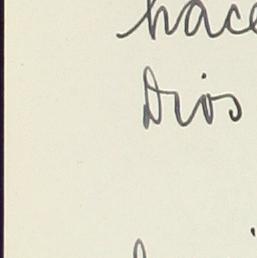 hace
Dios